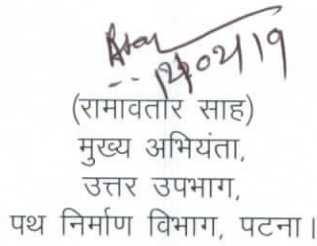 12/02/19
(रामावतार साह)
मुख्य अभियंता,
उत्तर उपभाग,
पथ निर्माण विभाग, पटना।